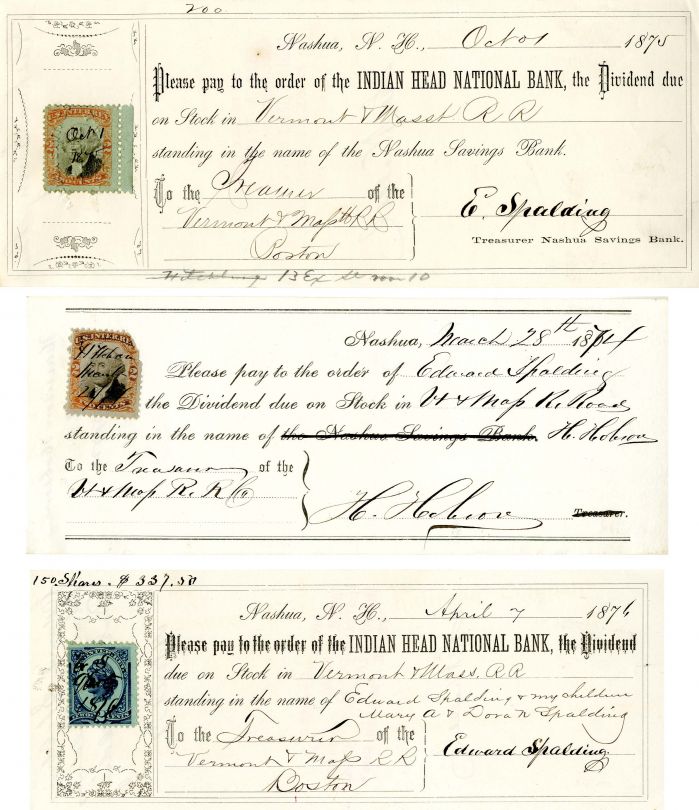 200
Nashua, N. H., Oct 1 1875
Please pay to the order of the INDIAN HEAD NATIONAL BANK, the Dividend due
on Stock in Vermont & Masst R R
standing in the name of the Nashua Savings Bank.
To the Treasurer of the
Vermont & Masstt R R
Boston
E. Spalding
Treasurer Nashua Savings Bank.
13 Ex St room 10
U.S. INTER. REV.
Oct 1
Nashua, March 28th 1874
Please pay to the order of Edward Spalding
the Dividend due on Stock in Vt & Mass R. Road
standing in the name of the Nashua Savings Bank. H. Hobson
To the Treasurer of the
Vt & Mass R. R Co
H. Hobson
Treasurer.
U.S. INTER. REV.
H Hobson
CENTS
150 Shares - $ 337.50
Nashua, N. H., April 7 1876
Please pay to the order of the INDIAN HEAD NATIONAL BANK, the Dividend
due on Stock in Vermont & Mass. R R
standing in the name of Edward Spalding & my children
Mary A & Dora N Spalding
To the Treasurer of the
Vermont & Mass R R
Boston
Edward Spalding
1876
CENTS